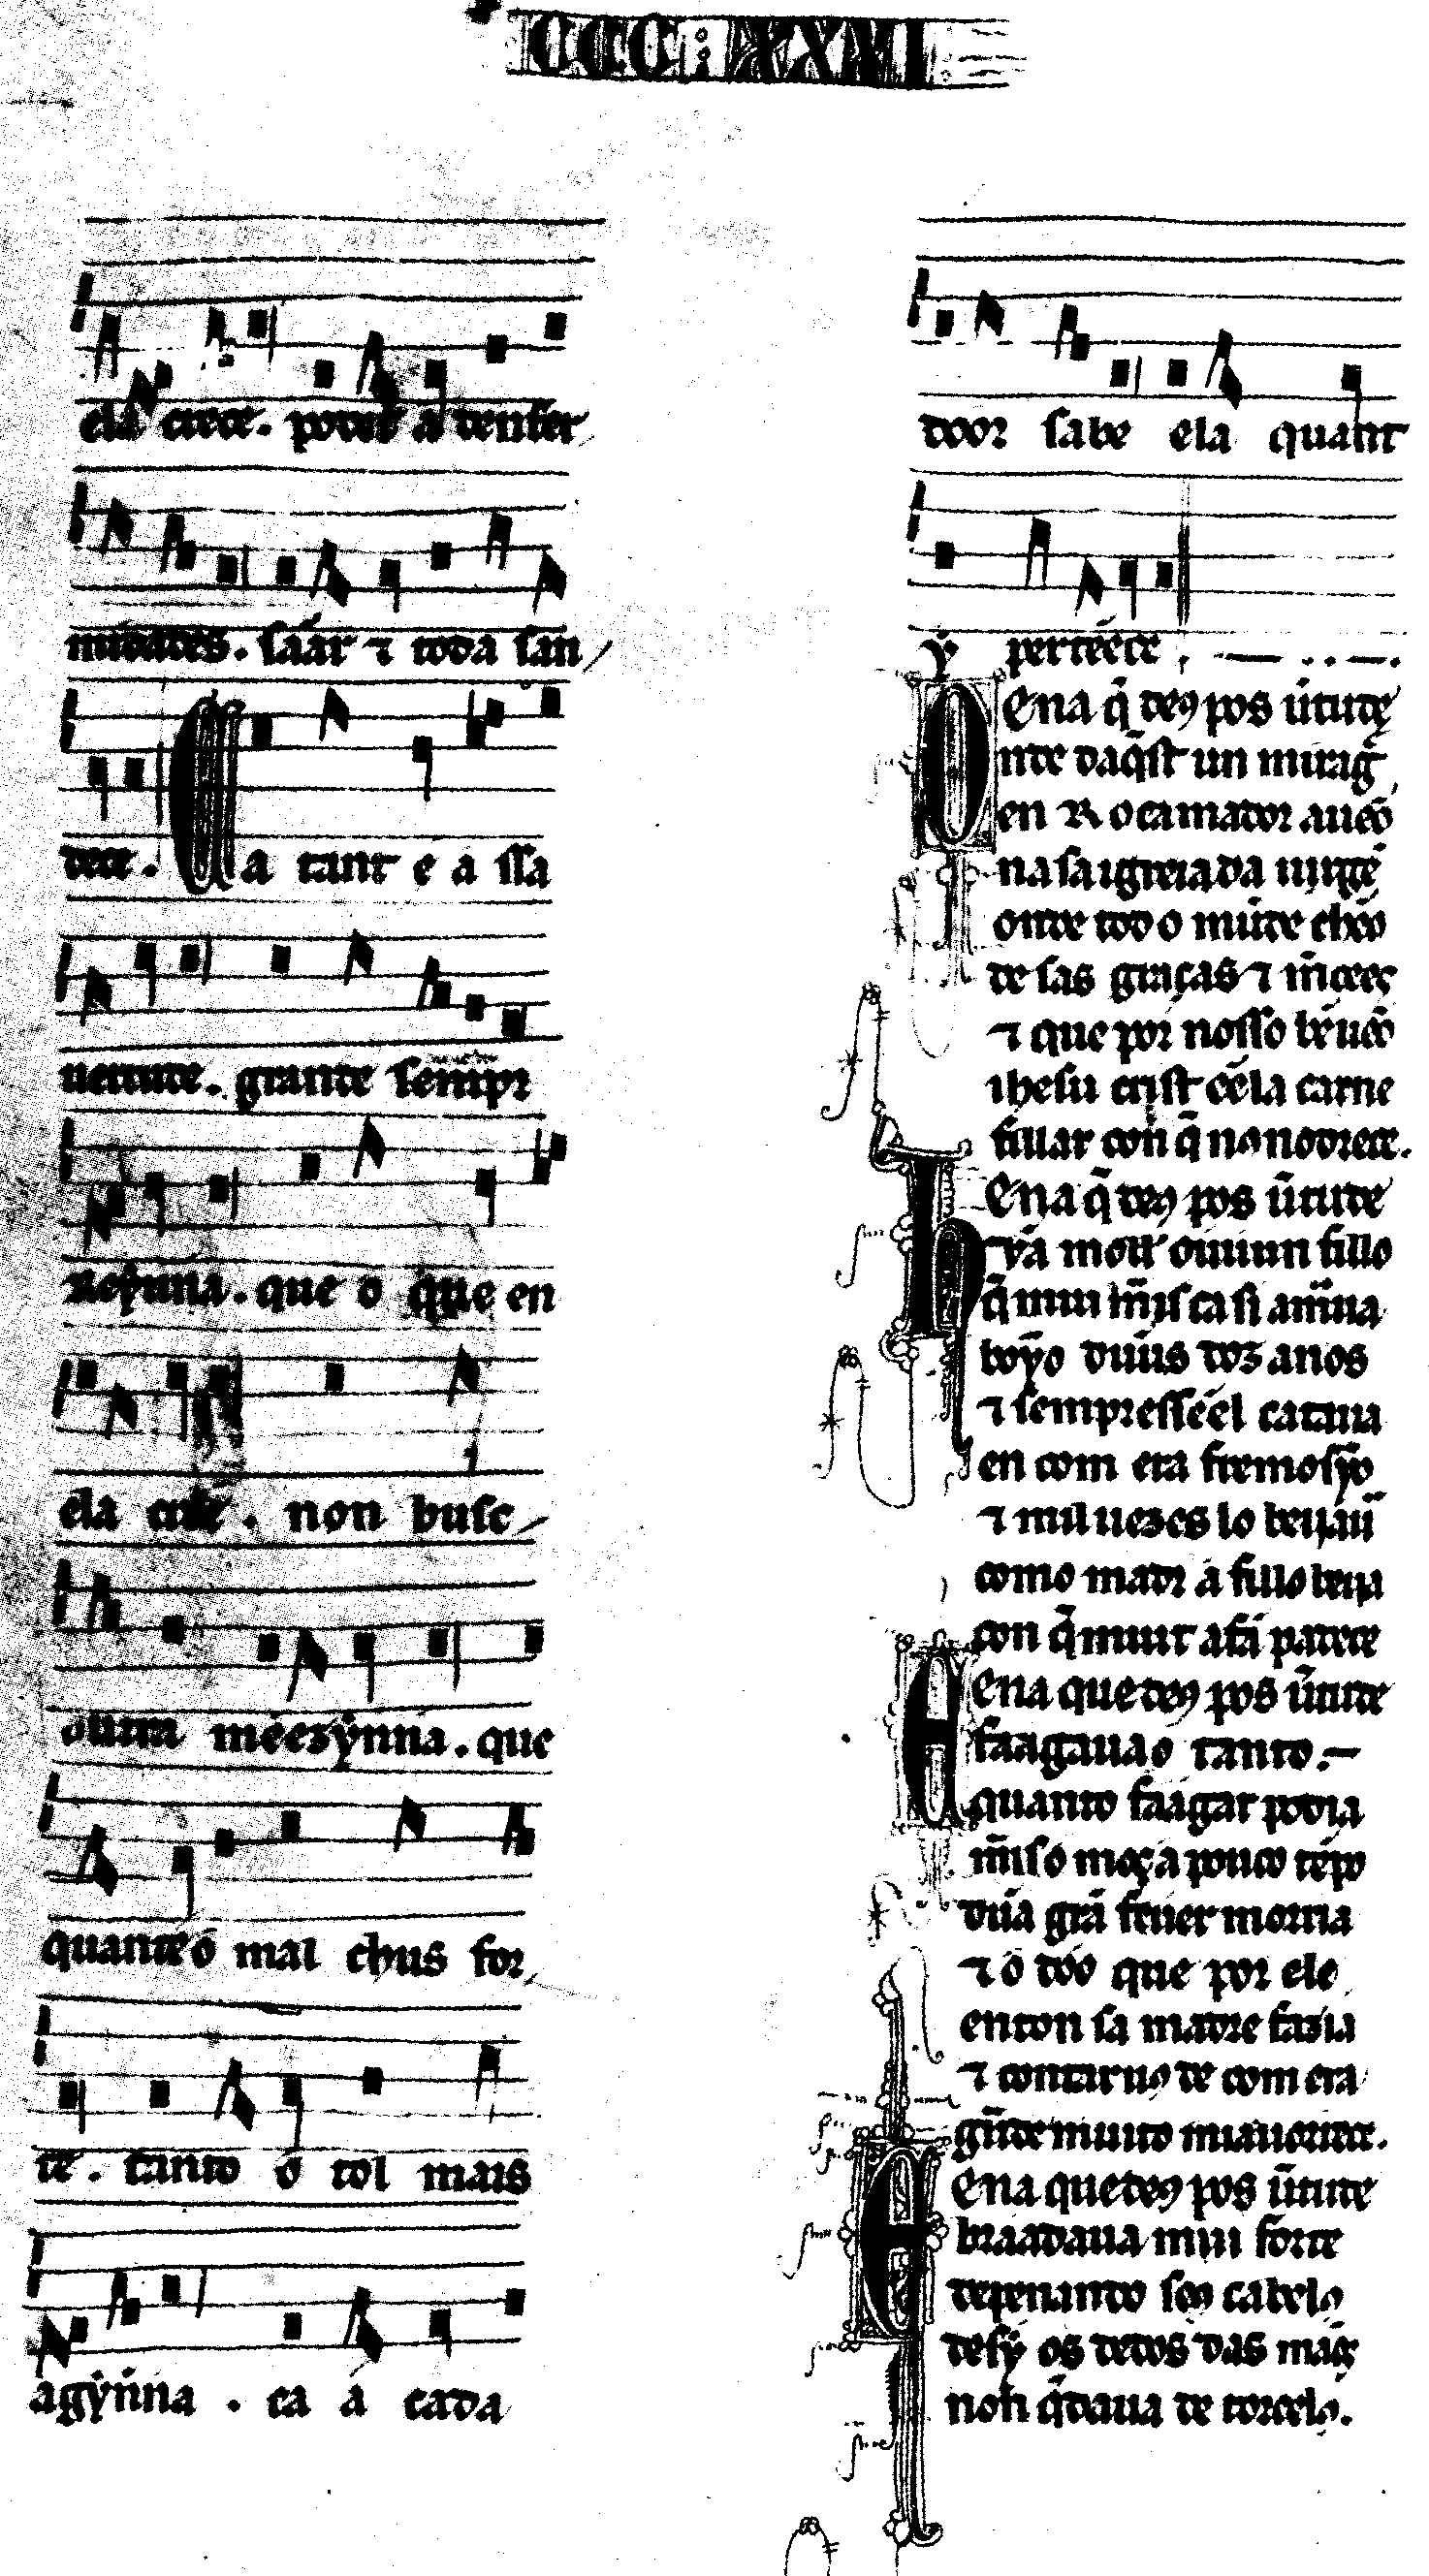 CCC: XXVI
ela crece. poder a denfer
midades. sãar ⁊ toda san
dece. Ca tant e a ssa
uertude. grande sempr
Reỹnna. que o que en
ela cree. non busc
outra meezỹnna. que
quanto mal chus for
te. tanto o tol mais
agỹnna. ca a cada
door sabe ela quant
y perteece
Ena q̃ de9 pos ũtude
Onde daq̃st un mirag̃
en Rocamador auẽo
na sa igreia da uirgẽ
onde todo mũde chẽo
de sas graças ⁊ m̃cees
⁊ que por nosso bẽ uẽo
ihesu crist eela carne
fillar con q̃ nono doece.
Ena q̃ de9 pos ũtude
Hũa moll ouui un fillo
q̃ mui m̃is ca si amaua
boỹo duũs doz anos
⁊ sempresseel cataua
en com era fremosỹo
⁊ mil uezes lo beijaũ
como madr a fillo beija
con q̃ muit a fa parece
Ena que de9 pos ũtude
E faagauao tanto.
quanto faagar podia
m̃is o moço a pouco tẽpo
dũa grã feuer morria
⁊ o doo que por ele
enton sa madre fazia
⁊ contaruo de com era
g̃nde muito mi auorrece.
Ena que de9 pos ũtude
E braadaua mui forte
depenando se9 cabelo
desỹ os dedos das mãos
non q̃daua de torcelo.